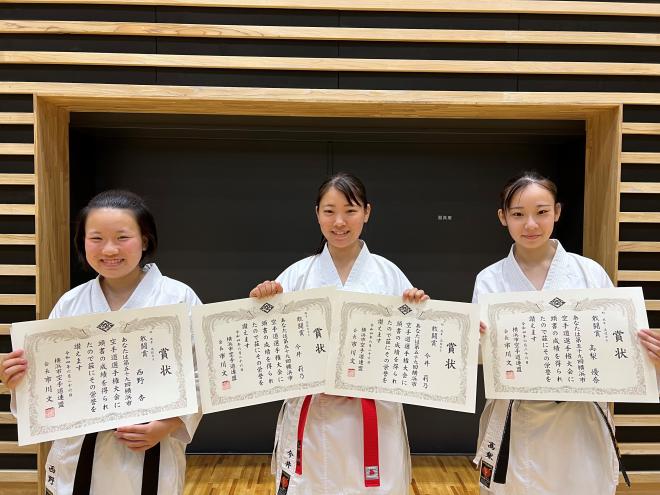 器具庫
賞状
敢闘賞
西野 杏
あなたは第五十九回横浜市
空手道選手権大会に
頭書の成績を得られ
たので茲にその栄誉を
讃えます
横浜市空手道連盟
会長 市川 文
賞状
敢闘賞
今井 莉乃
あなたは第五十九回横浜市
空手道選手権大会に
頭書の成績を得られ
たので茲にその栄誉を
讃えます
横浜市空手道連盟
会長 市川 文
賞状
敢闘賞
今井 莉乃
あなたは第五十九回横浜市
空手道選手権大会に
頭書の成績を得られ
たので茲にその栄誉を
讃えます
横浜市空手道連盟
会長 市川 文
賞状
敢闘賞
高梨 優奈
あなたは第五十九回横浜市
空手道選手権大会に
頭書の成績を得られ
たので茲にその栄誉を
讃えます
横浜市空手道連盟
会長 市川 文
西野
今井
高梨